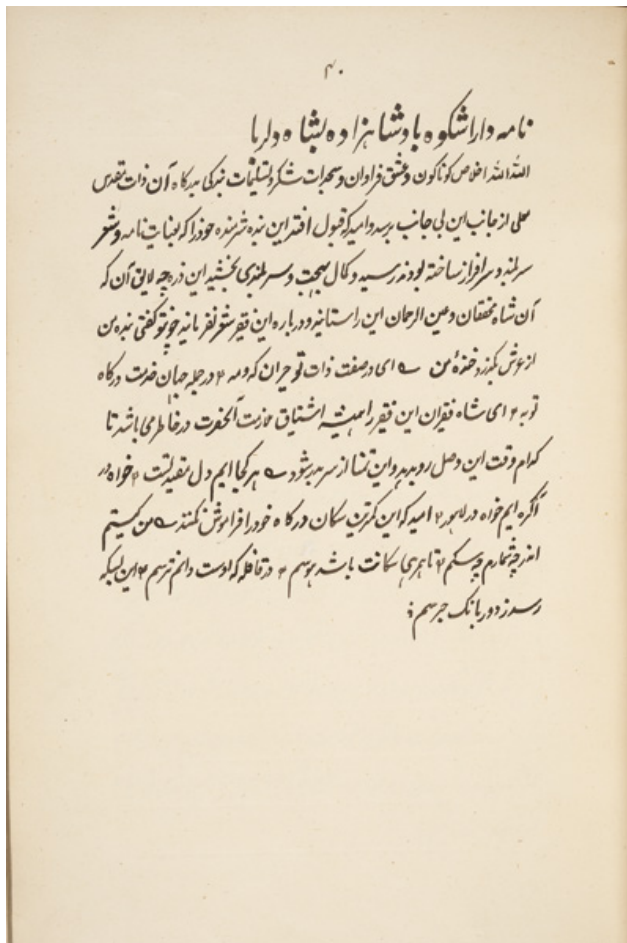 ۴۰
نامه داراشکوه بادشاهزاده بشاه دلربا
الله الله اخلاص کوناکون و عشق فراوان و سجدات شکر و تسلیمات نیرکی بدرکاه آن ذات مقدس
معلی از جانب این بی جانب برسد و امید که قبول افتد این بنده شرمنده خود را که بعنایت نامه و شعر
سربلند و سرافراز ساخته بودند رسید و کمال بهجت و سربلندی بخشید این ذره چه لایق آن که
آن شاه محققان و عین الرحمان این راستانید و درباره این فقیر شعر نفرمانید چو تو کفتی بنده من
از عرش بگذرد خنده من ای در صفت ذات تو حیران که و مه ۴ در جمله جهان خدمت درکاه
تو به ۴ ای شاه فقیران این فقیر را همیشه اشتیاق ملازمت آنحضرت در خاطر می باشد تا
کدام وقت این وصل رو بدهد و این تمنا از سر بدر شود هر کجا ایم دل مقید تست ۴ خواه در
آکره ایم خواه در لاهور ۴ امید که این کمترین سکان درکاه خود را فراموش نکنند من کیستم
اندر چه شمارم چه سکم ۴ تا همرهی سکانت باشد هوسم ۴ در قافله که اوست دانم نرسم ۴ این بسکه
رسد ز دور بانک جرسم